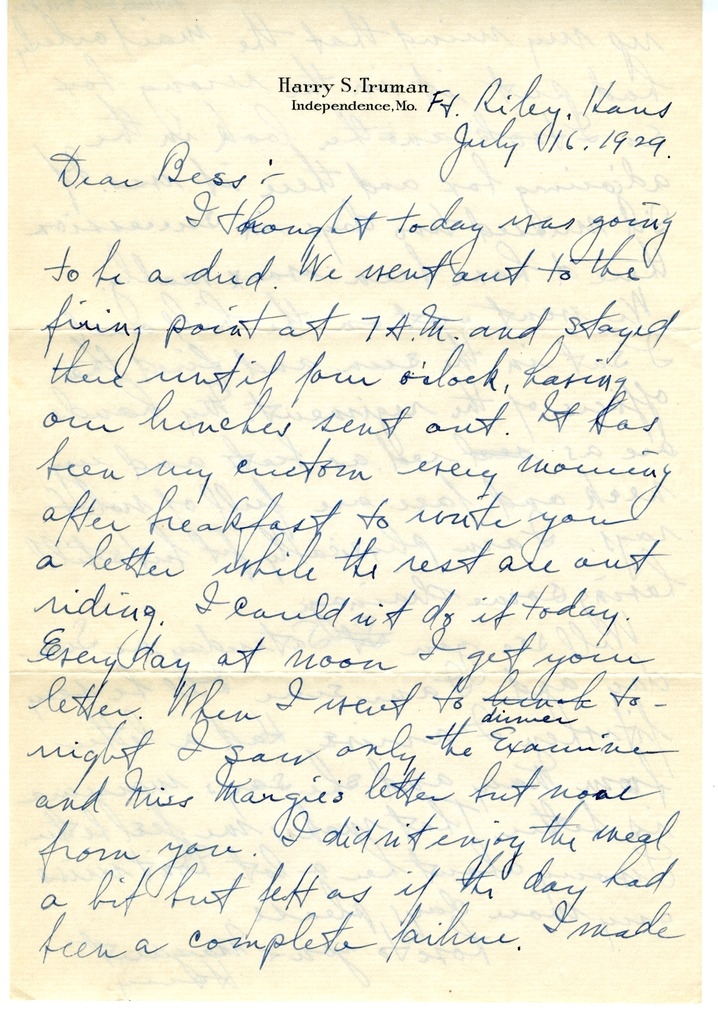 Harry S. Truman
Independence, Mo.
Ft. Riley, Kans
July 16. 1929.
Dear Bess :-
I thought today was going
to be a dud. We went out to the
firing point at 7 A.M. and stayed
there until four o'clock, having
our lunches sent out. It has
been my custom every morning
after breakfast to write you
a letter while the rest are out
riding. I couldn't do it today.
Every day at noon I get your
letter. When I went to lunch to-
dinner
night I saw only the Examiner
and Miss Margie's letter but none
from you. I didn't enjoy the meal
a bit but felt as if the day had
been a complete failure. I made